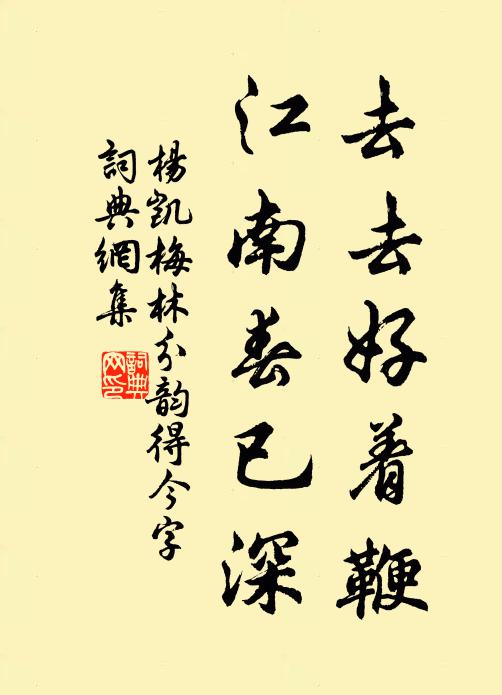 去去好着鞭
江南春已深
楊凱梅林分韵得今字
詞典網集
詞典網印